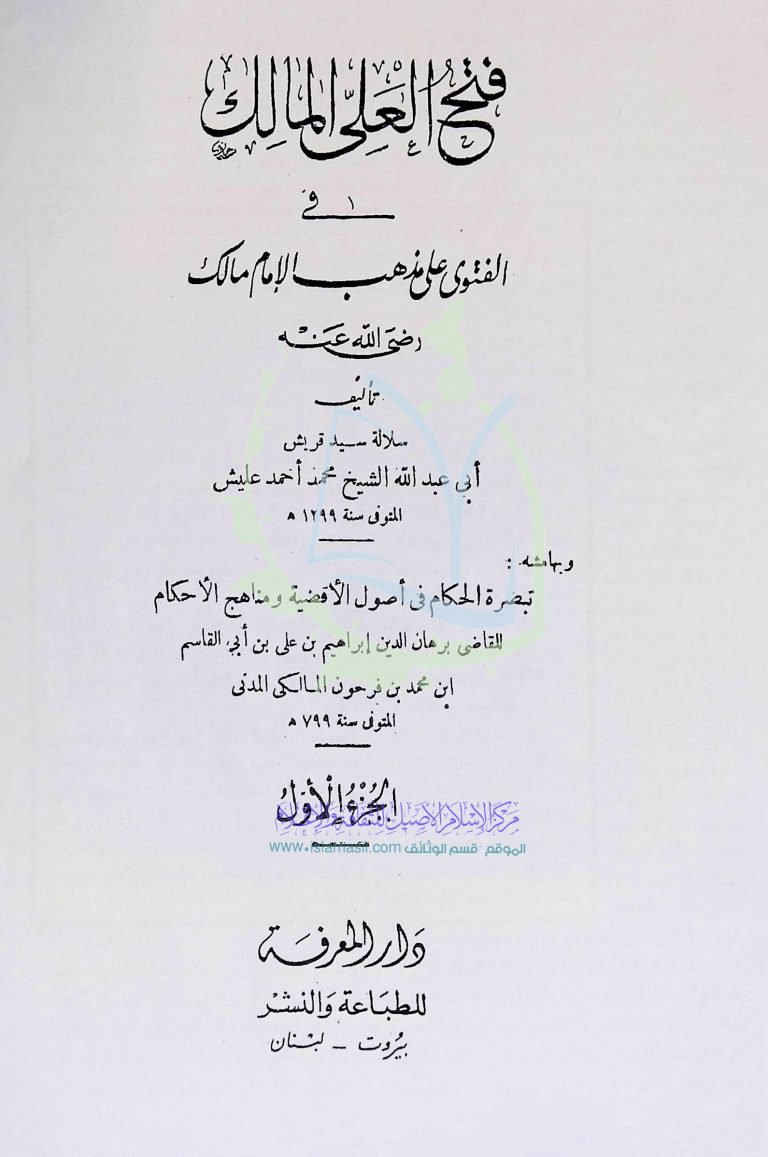 فتح العلي المالك
في
الفتوى على مذهب الإمام مالك
رضي الله عنه
تأليف
سلالة سيد قريش
أبي عبد الله الشيخ محمد أحمد عليش
المتوفى سنة ١٢٩٩ ه
وبهامشه :
تبصرة الحكام في أصول الأقضية ومناهج الأحكام
للقاضى برهان الدين إبراهيم بن على بن أبي القاسم
ابن محمد بن فرحون المالكى المدنى
المتوفى سنة ٧٩٩ ه
الجزء الأول
مركز الإسلام الأصيل للثقافة والإعلام
الموقع - قسم الوثائق www.islamasil.com
دار المعرفة
للطباعة والنشر
بيروت - لبنان